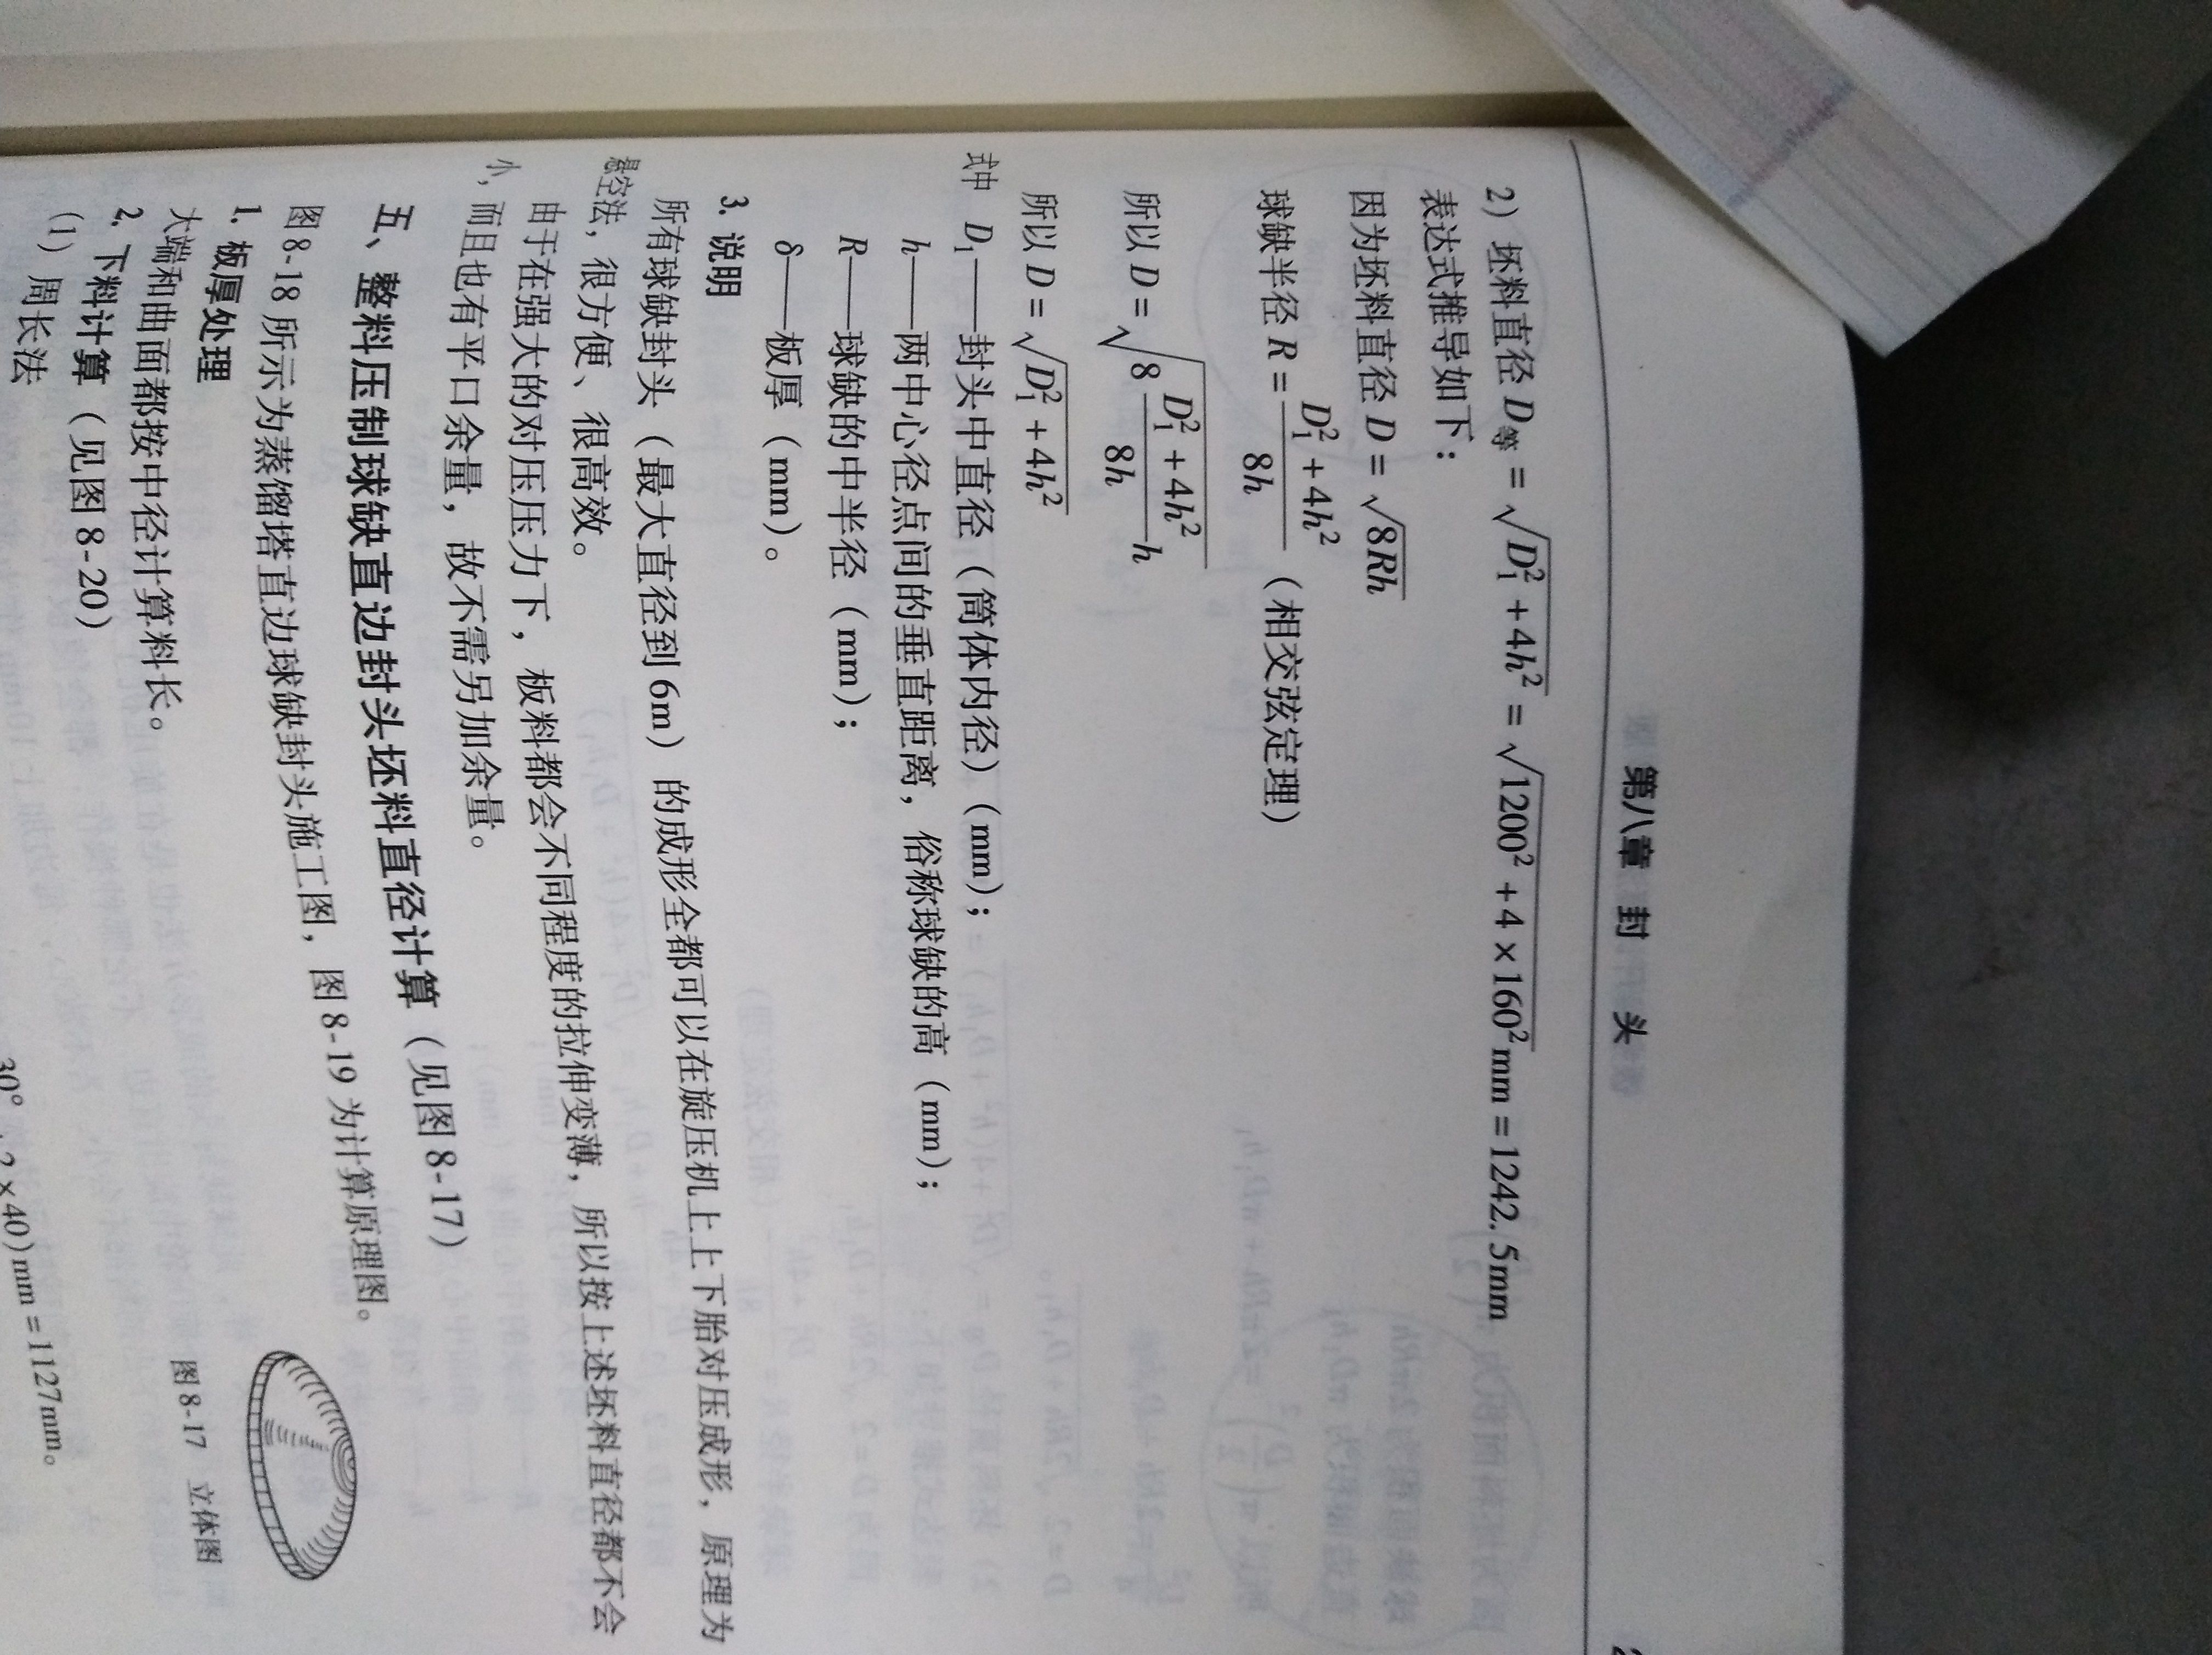 第八章 封 头
2) 坯料直径 D等 = √(D₁² + 4h²) = √(1200² + 4 × 160²) mm = 1242.5mm
表达式推导如下：
因为坯料直径 D = √(8Rh)
球缺半径 R = (D₁² + 4h²)/(8h) （相交弦定理）
所以 D = √(8 (D₁² + 4h²)/(8h) h)
所以 D = √(D₁² + 4h²)
式中 D₁——封头中直径（筒体内径）（mm）；
h——两中心径点间的垂直距离，俗称球缺的高（mm）；
R——球缺的中半径（mm）；
δ——板厚（mm）。
3. 说明
所有球缺封头（最大直径到6m）的成形全都可以在旋压机上上下胎对压成形，原理为
悬空法，很方便、很高效。
由于在强大的对压压力下，板料都会不同程度的拉伸变薄，所以按上述坯料直径都不会
小，而且也有平口余量，故不需另加余量。
五、整料压制球缺直边封头坯料直径计算（见图 8-17）
图 8-18 所示为蒸馏塔直边球缺封头施工图，图 8-19 为计算原理图。
1. 板厚处理
大端和曲面都按中径计算料长。
2. 下料计算（见图 8-20）
(1) 周长法
图 8-17 立体图
2 × 40) mm = 1127mm。